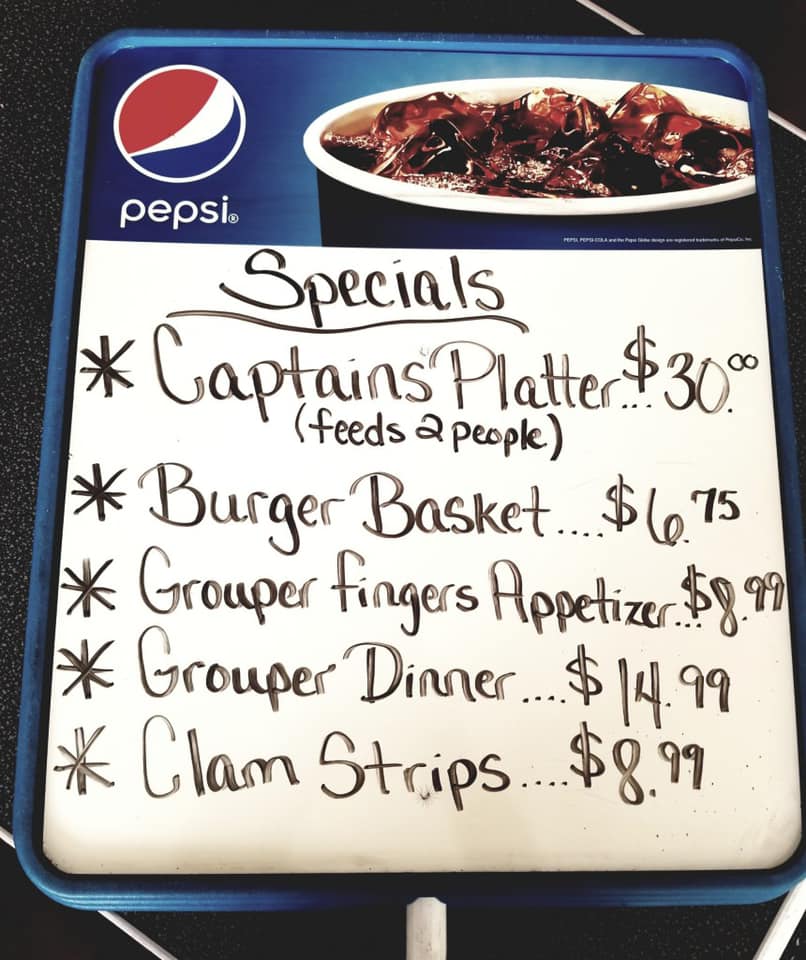 pepsi®
PEPSI, PEPSI-COLA and the Pepsi Globe design are registered trademarks of PepsiCo, Inc.
Specials
* Captains Platter...$30.00
(feeds 2 people)
* Burger Basket....$6.75
* Grouper fingers Appetizer...$8.99
* Grouper Dinner....$14.99
* Clam Strips....$8.99